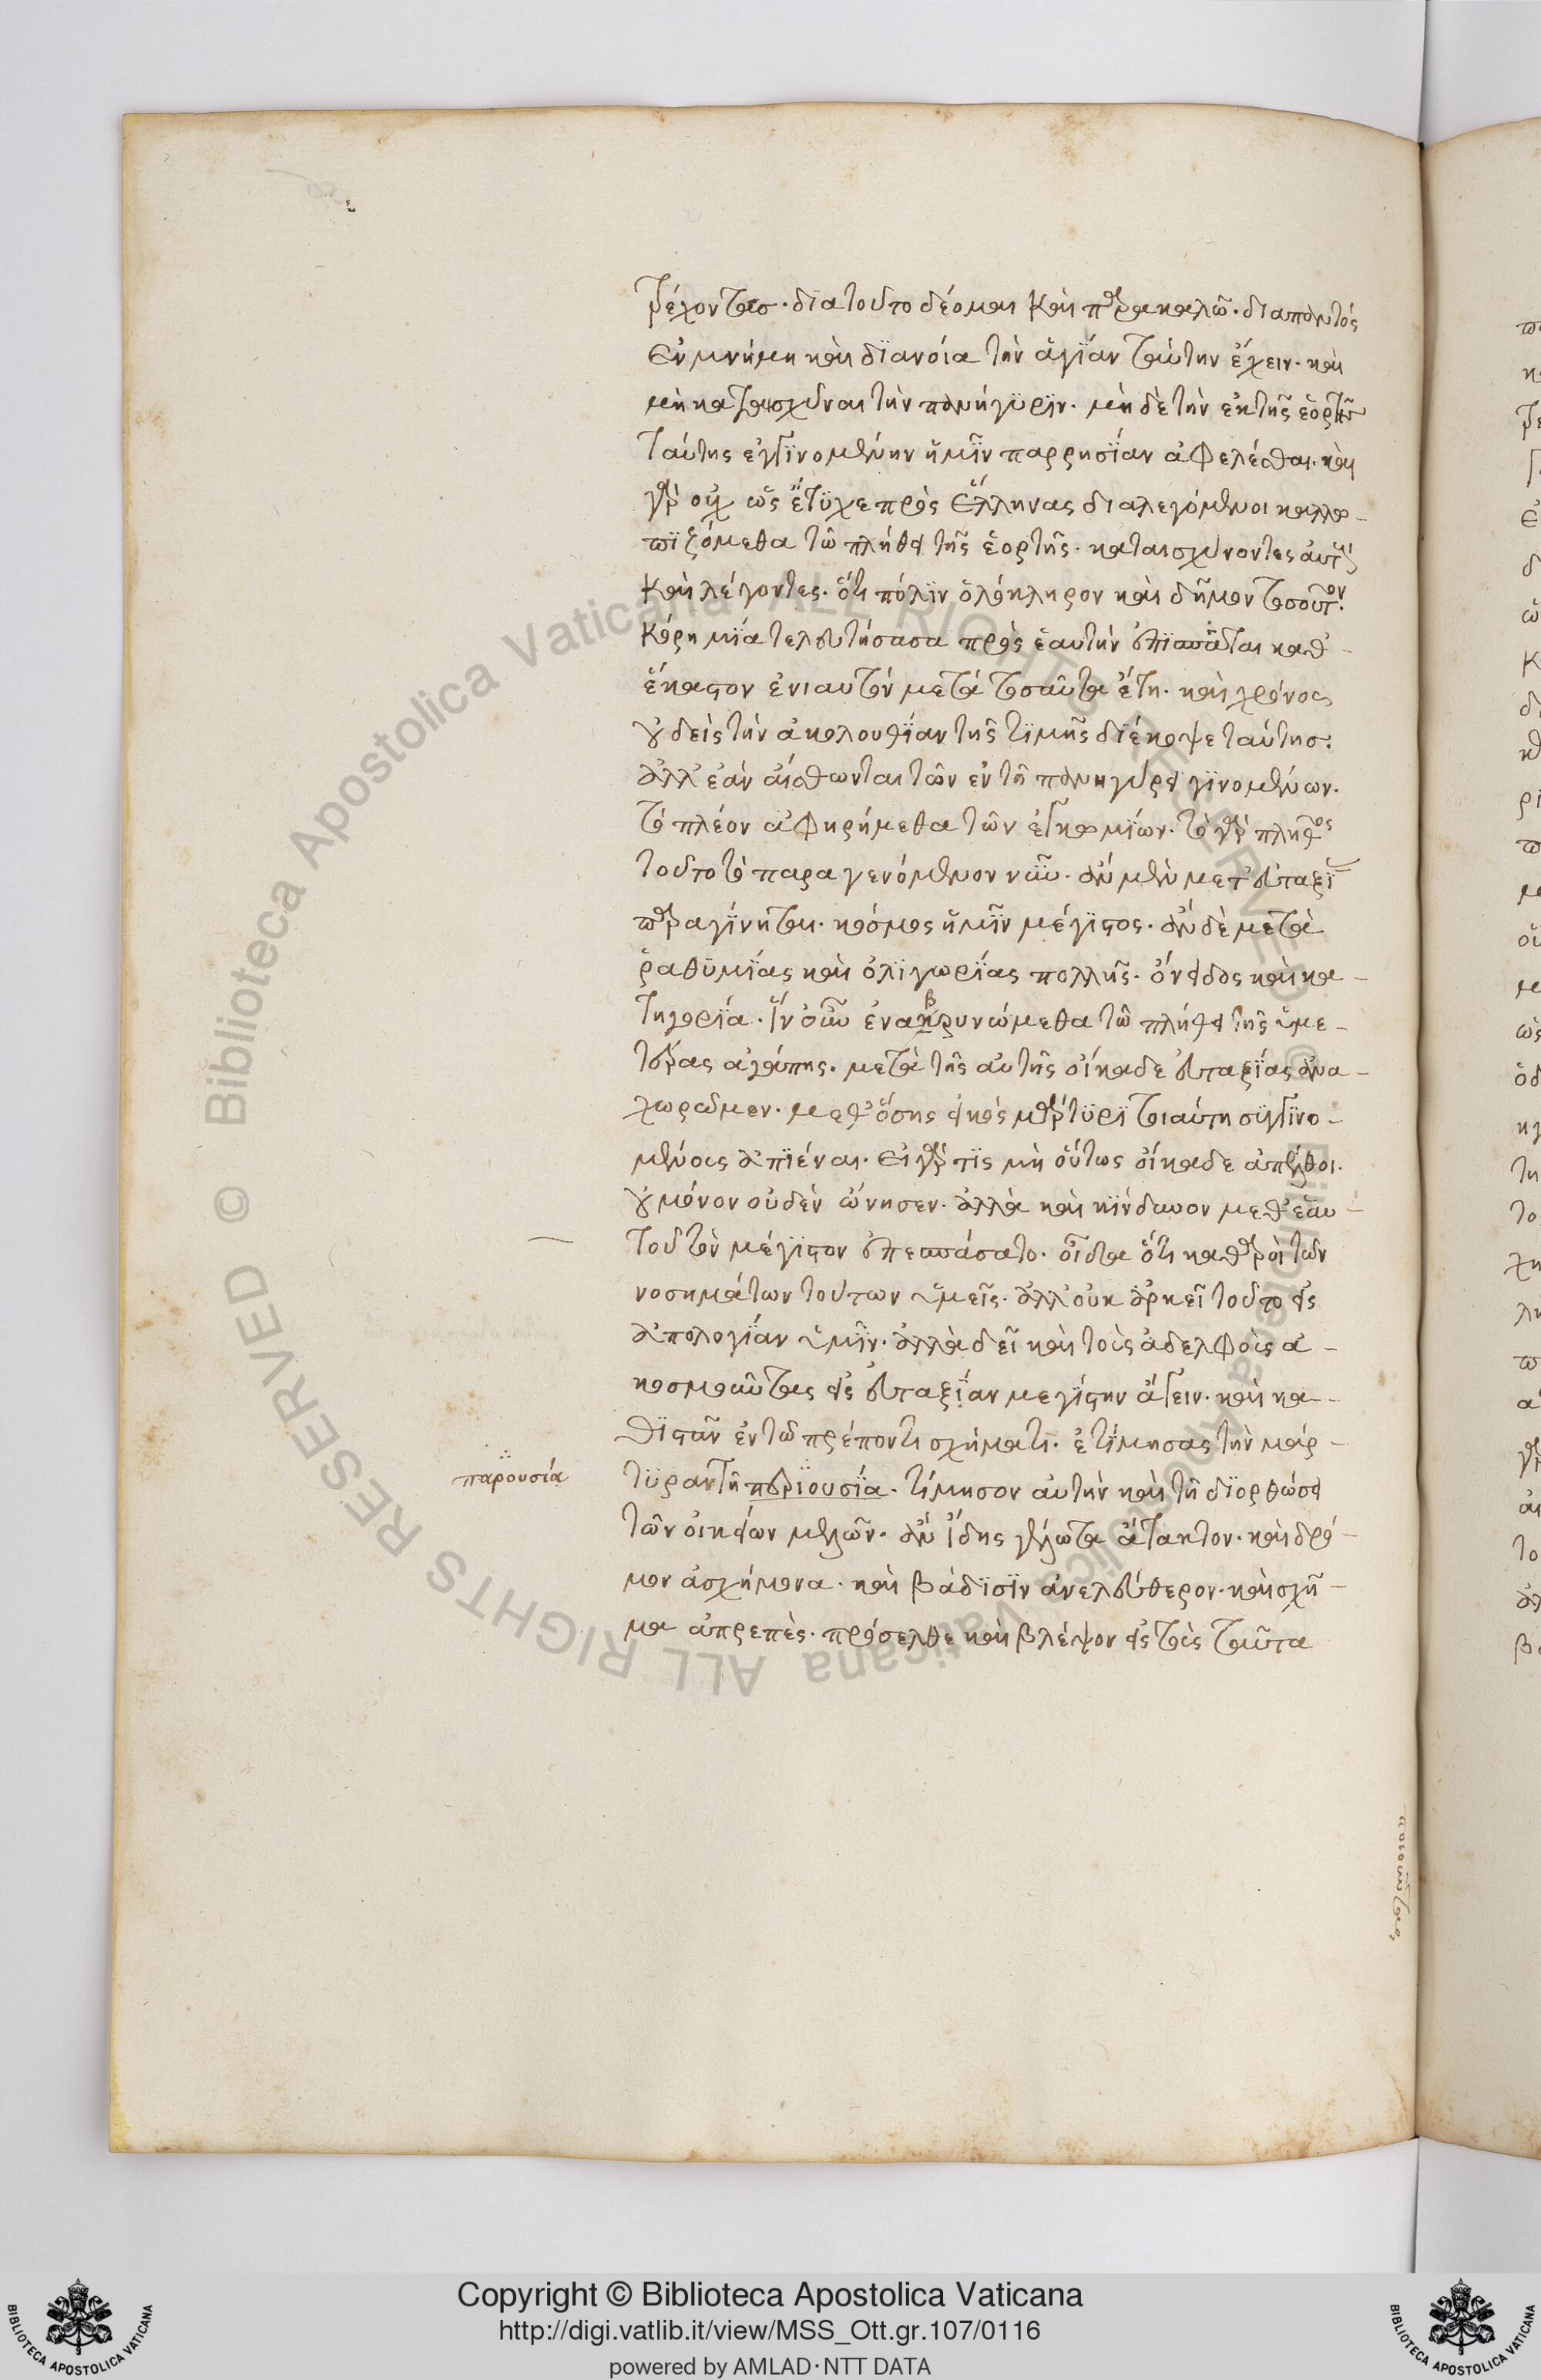 τρέχοντασ· διατοῦτο δέομαι καὶ παρακαλῶ· διαπαντός
ἐν μνήμη καὶ διανοία τὴν ἁγίαν ταύτην ἔχειν· καὶ
μὴ καταισχύναι τὴν πανήγυριν· μὴ δὲ τὴν ἐκ τῆς ἑορτῆς
ταύτης ἐγγινομένην ἡμῖν παρρησίαν ἀφελέσθαι· καὶ
γὰρ οὐχ ὡς ἔτυχε πρὸς ἕλληνας διαλεγόμενοι καλλω-
πιζόμεθα τῶ πλήθει τῆς ἑορτῆς· καταισχύνοντες αὐτοὺς
καὶ λέγοντες· ὅτι πόλιν ὁλόκληρον καὶ δῆμον τοσοῦτον·
κόρη μία τελευτήσασα πρὸς ἑαυτὴν ἐπισπᾶται καθ᾽-
ἕκαστον ἐνιαυτὸν μετὰ τοσαῦτα ἔτη· καὶ χρόνος
οὐδεὶς τὴν ἀκολουθίαν τῆς τιμῆς διέκοψε ταύτησ·
ἀλλ᾽ ἐὰν αἴσθωνται τῶν ἐν τῆ πανηγύρει γινομένων·
τὸ πλέον ἀφηρήμεθα τῶν ἐγκωμίων· τὸ γὰρ πλῆθος
τοῦτο τὸ παραγενόμενον νῦν· ἂν μὲν μετ᾽ εὐταξίας
παραγίνηται· κόσμος ἡμῖν μέγιστος· ἂν δὲ μετὰ
ῥαθυμίας καὶ ὀλιγωρίας πολλῆς· ὄνειδος καὶ κα-
τηγορία· ἵν᾽ οὖν ἐνακρυνώμεθα τῶ πλήθει τῆς ὑμε-
β
τέρας ἀγάπης· μετὰ τῆς αὐτῆς οἴκαδε εὐταξίας ἀνα-
χωρῶμεν· μεθ᾽ ὅσης εἰκὸς μάρτυρι τοιαύτη συγγινο-
μένοις ἀπιέναι· εἰ γάρ τις μὴ οὕτως οἴκαδε ἀπέλθοι·
οὐ μόνον οὐδὲν ὤνησεν· ἀλλὰ καὶ κίνδυνον μεθ᾽ ἑαυ-
τοῦ τὸν μέγιστον ἐπεσπάσατο· οἶδα ὅτι καθαροὶ τῶν
νοσημάτων τούτων ὑμεῖς· ἀλλ᾽ οὐκ ἀρκεῖ τοῦτο εἰς
ἀπολογίαν ὑμῖν· ἀλλὰ δεῖ καὶ τοὺς ἀδελφοὺς ἀ-
κοσμοῦντας εἰς εὐταξίαν μεγίστην ἄγειν· καὶ κα-
θιστᾶν ἐν τῶ πρέποντι σχήματι· ἐτίμησας τὴν μάρ-
παρουσία
τυραν τῆ περιουσία· τίμησον αὐτὴν καὶ τῆ διορθώσει
τῶν οἰκείων μελῶν· ἂν ἴδης γέλωτα ἄτακτον· καὶ δρό-
μον ἀσχήμονα· καὶ βάδισιν ἀνελεύθερον· καὶ σχῆ-
μα ἀπρεπὲς· πρόσελθε καὶ βλέψον εἰς τοὺς ταῦτα
ποιοῦντας
Copyright © Biblioteca Apostolica Vaticana
http://digi.vatlib.it/view/MSS_Ott.gr.107/0116
powered by AMLAD·NTT DATA
BIBLIOTECA APOSTOLICA VATICANA
BIBLIOTECA APOSTOLICA VATICANA
© Biblioteca Apostolica Vaticana ALL RIGHTS RESERVED
© Biblioteca Apostolica Vaticana ALL RIGHTS RESERVED